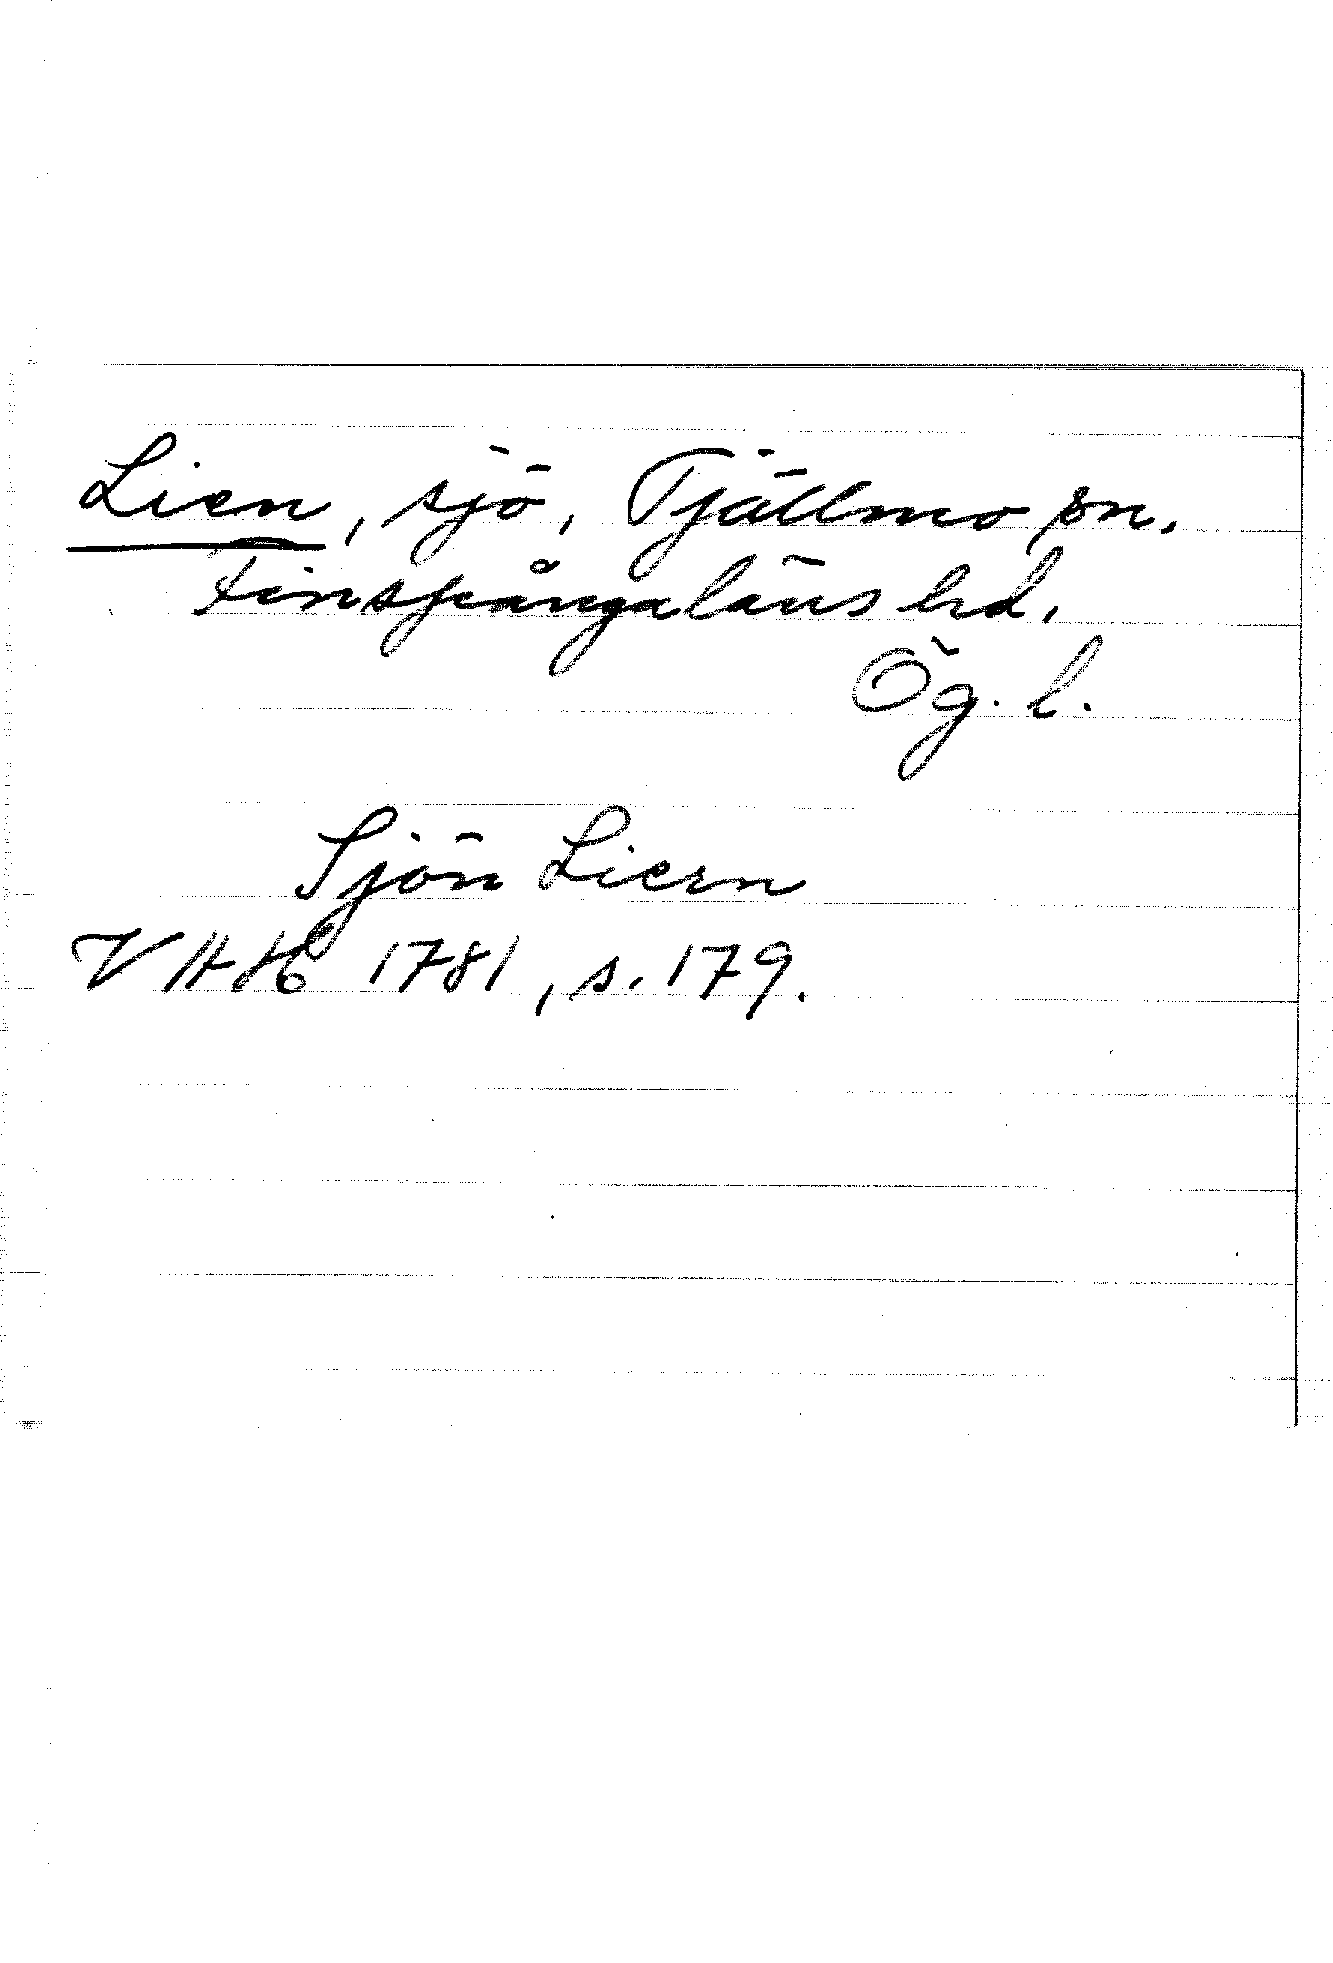 Lien, sjö, Tjällmo sn.
Finspångaläns hd.
Ög. l.
Sjön Liern
VHAH 1781, s. 179.